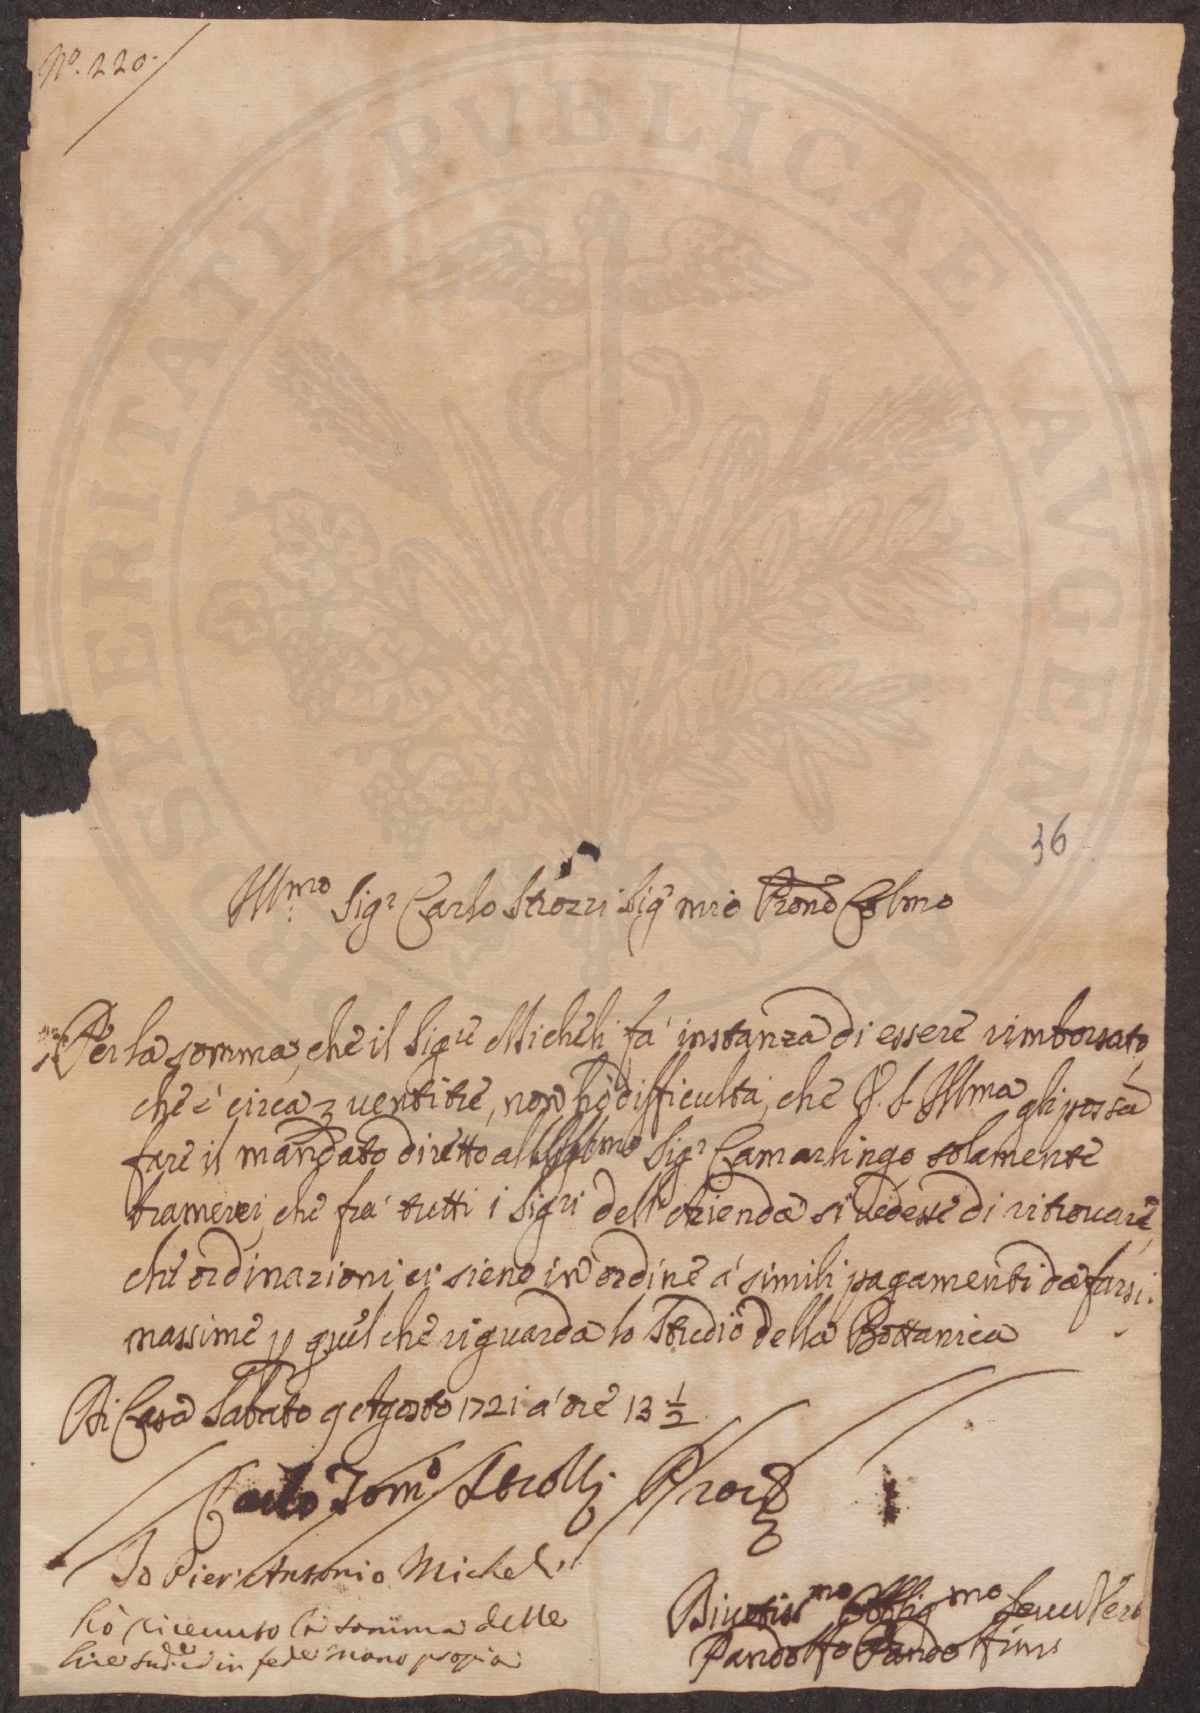 N.º 220.
PROSPERITATI PVBLICAE AVGENDAE
36
Ill.mo Sig.r Carlo Strozzi Sig.e mio Prone Colmo
Per la somma, che il Sig.re Micheli fa' instanza di essere rimborsato,
che è circa ventitre, non hò difficultà, che V. S. Ill.ma gli possa
fare il mandato diretto all'Illmo Sig.r Camarlingo solamente
bramerei, che fra' tutti i Sig.ri dell'Azienda si vedesse di ritrovare,
che ordinazioni ci sieno in ordine a' simili pagamenti da farsi:
massime p quel che riguarda lo Studio della Bottanica
Di Casa Sabato 9 Agosto 1721 a' ore 13 1/2
Carlo Tom.o Strozzi
Io Pier' Antonio Micheli
hò ricevuto la somma delle
lire sud.e ed in fede mano propia
Divotiss.mo Obblig.mo Serv Vero
Pandolfo Pandolfini